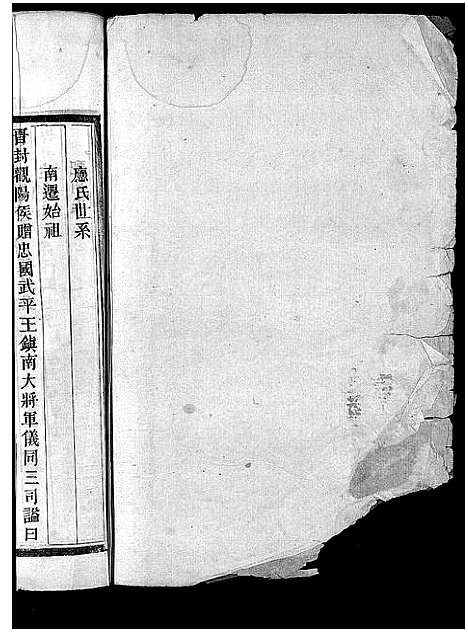 應氏世系
南遷始祖
晋封觀陽侯贈忠國武平王鎮南大將軍儀同三司謚曰